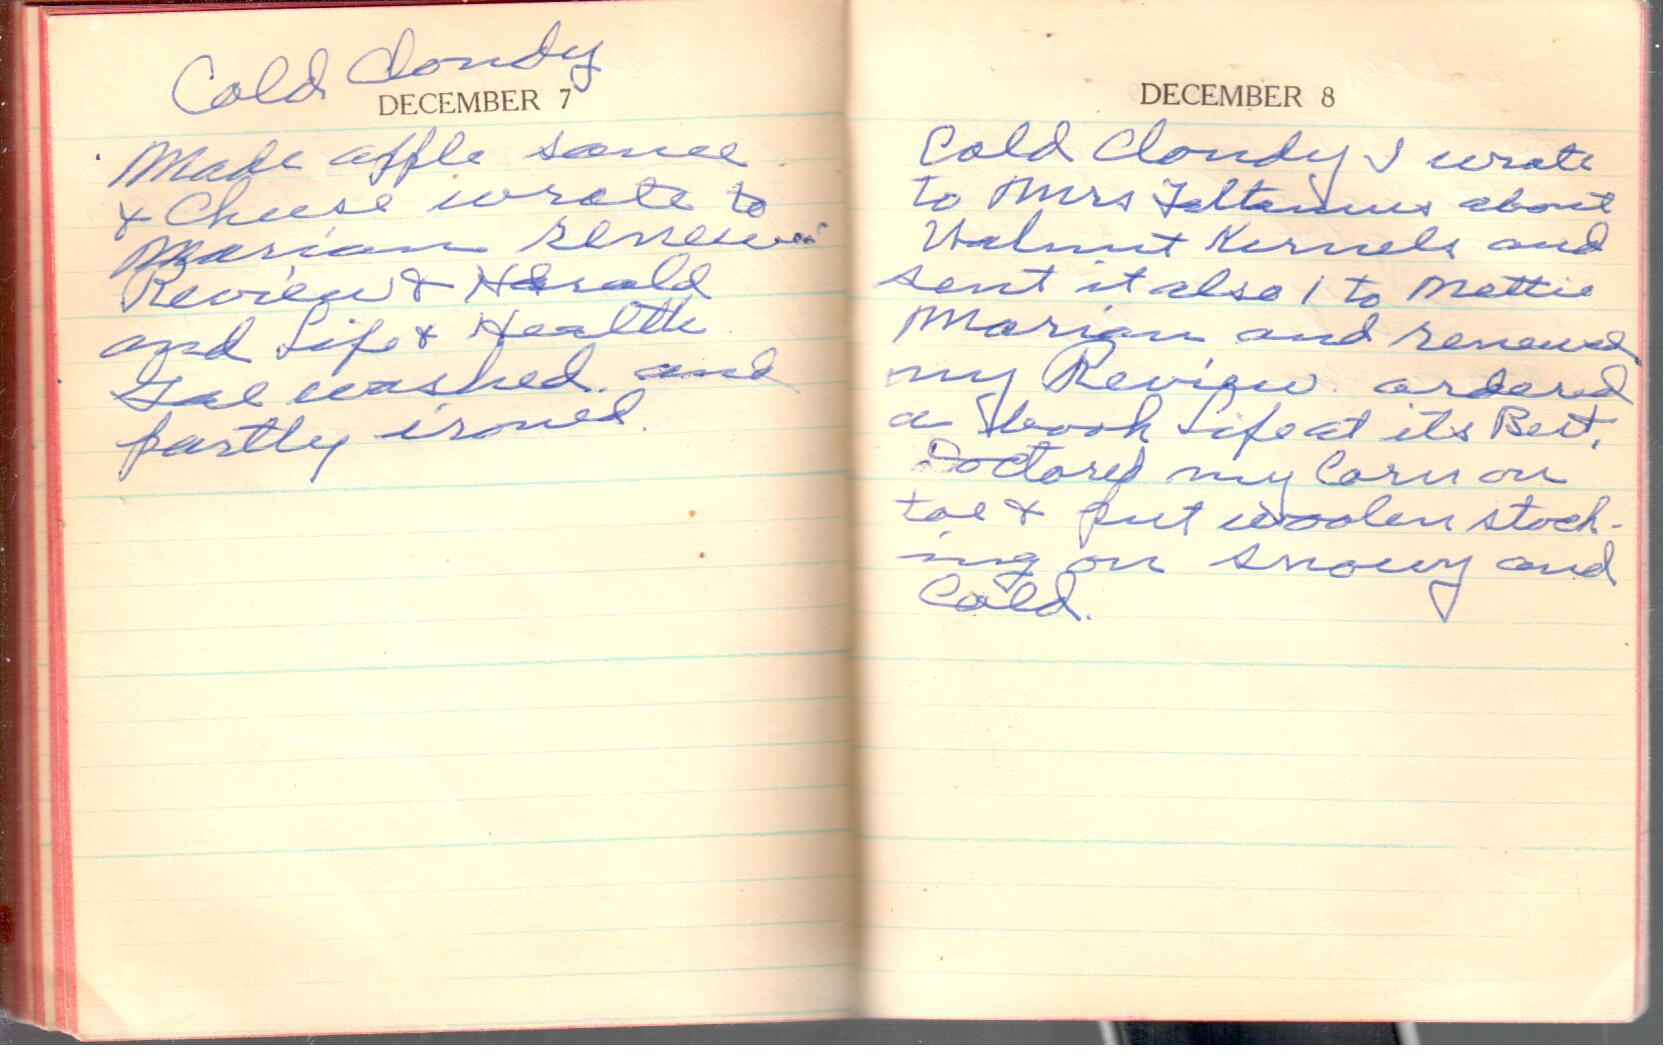 Cold Cloudy
DECEMBER 7
Made apple sauce
& Cheese wrote to
Marian renew
Review & Herald
and Life & Health
Gae washed. and
partly ironed.
DECEMBER 8
Cold Cloudy I wrote
to Mrs about
Walnut Kernels and
sent it also 1 to Mettie
Marian and renewed
my Review. ordered
a book Life at its Best.
Doctored my Corn on
toe & put woolen stock-
ing on snowy and
Cold.